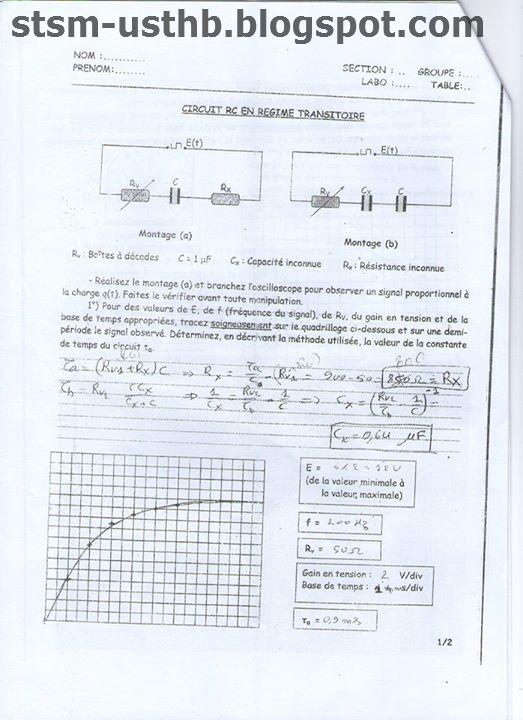 stsm-usthb.blogspot.com
NOM :..........
PRENOM:.......
SECTION : .. GROUPE :....
LABO :.... TABLE:..
CIRCUIT RC EN REGIME TRANSITOIRE
E(t) E(t)
Rv C Rx Rv Cx C
Montage (a) Montage (b)
Rv : Boîtes à décades C = 1 µF Cx : Capacité inconnue Rx : Résistance inconnue
- Réalisez le montage (a) et branchez l'oscilloscope pour observer un signal proportionnel à
la charge q(t). Faites le vérifier avant toute manipulation.
1°) Pour des valeurs de E, de f (fréquence du signal), de Rv, du gain en tension et de la
base de temps appropriées, tracez soigneusement sur le quadrillage ci-dessous et sur une demi-
période le signal observé. Déterminez, en décrivant la méthode utilisée, la valeur de la constante
de temps du circuit τa.
τa = (Rv1 + Rx) C ⇒ Rx = τa/C - Rv1 = 900 - 50 = 850 Ω = Rx
τb = Rv2 C Cx/Cx + C ⇒ 1/Cx = Rv2/τb - 1/C ⇒ Cx = (Rv2/τb - 1/C)⁻¹ =
Cx = 0,64 µF
E =
(de la valeur minimale à
la valeur maximale)
f = 200 Hz
Rv = 50 Ω
Gain en tension : 2 V/div
Base de temps : ms/div
τa = 0,9 ms
1/2